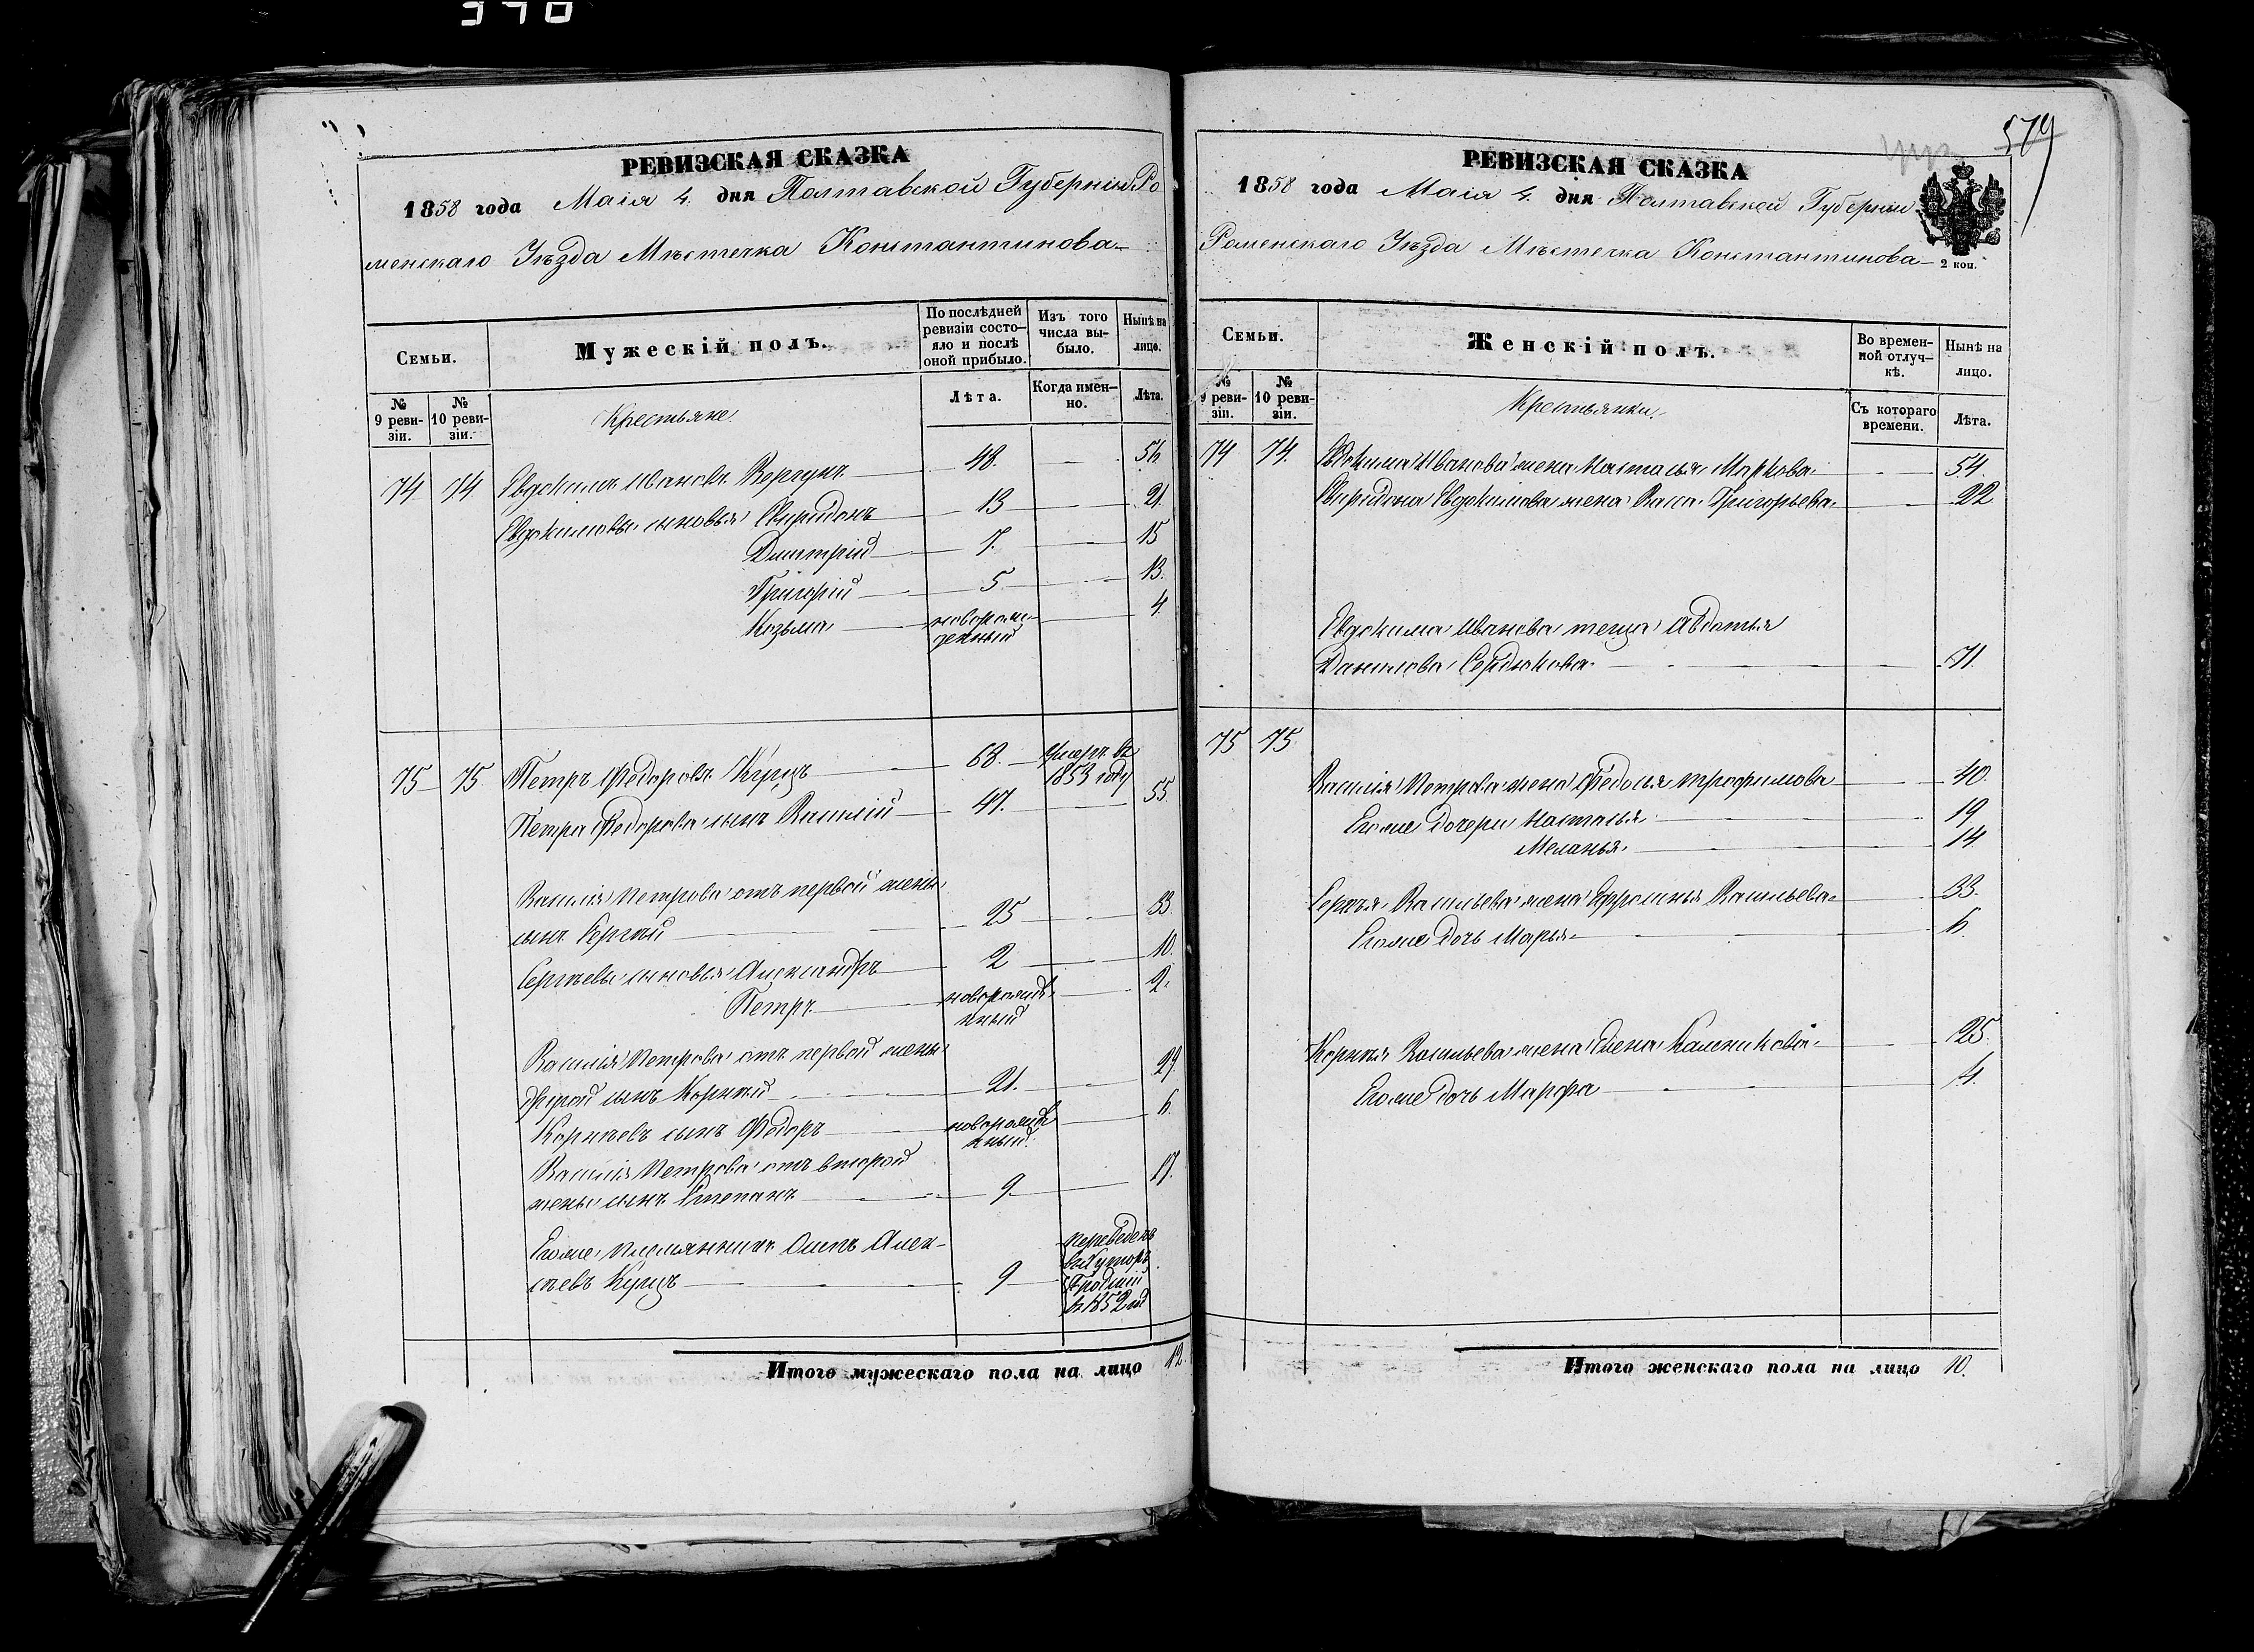 370
РЕВИЗСКАЯ СКАЗКА
1858 года Маія 4. дня Полтавской Губерніи Ро
менскаго Уѣзда Мѣстечка Константинова
Семьи.
Мужескій полъ.
По послѣдней ревизіи состояло и послѣ оной прибыло.
Изъ того числа выбыло.
Нынѣ на лицо.
№ 9 ревизіи.
№ 10 ревизіи.
Крестьяне
Лѣта.
Когда именно.
Лѣта.
74 74 Евдокимъ Ивановъ Вергунъ 48. 56
Евдокимовы сыновья Свиридонъ 13 21
Дмитрій 7. 15
Григорій 5 13.
Козьма новорожденный 4.
75 75 Петръ Федоровъ Куцъ 68. Умеръ въ 1853 году
Петра Федорова сынъ Василій 47. 55.
Василія Петрова отъ первой жены
сынъ Сергѣй 25 33.
Сергѣевы сыновья Александръ 2 10.
Петръ новорожденный 2.
Василія Петрова отъ первой жены
другой сынъ Корнѣй 21. 29.
Корнѣевъ сынъ Федоръ новорожденный 6.
Василія Петрова отъ второй
жены сынъ Степанъ 9 17.
Егоже племянникъ Осипъ Алек-
сѣевъ Куцъ 9 переведенъ въ Хуторъ въ 1852 год
Итого мужескаго пола на лицо 12.
579
РЕВИЗСКАЯ СКАЗКА
1858 года Маія 4. дня Полтавской Губерніи
Роменскаго Уѣзда Мѣстечка Константинова
2 коп.
Семьи.
Женскій полъ.
Во временной отлучкѣ.
Нынѣ на лицо.
№ 9 ревизіи.
№ 10 ревизіи.
Крестьянки
Съ котораго времени.
Лѣта.
74 74. Евдокима Иванова жена Наталья Маркова 54.
Свиридона Евдокимова жена Васса Григорьева 22
Евдокима Иванова теща Авдотья
Данилова Сердюкова 71.
75 75
Василія Петрова жена Федосья Трофимова 40.
Егоже дочери Наталья 19
Меланья 14
Сергѣя Васильева жена Ефросинья Васильева 33.
Егоже дочь Марья 6.
Корнѣя Васильева жена Елена Калениковa 25
Егоже дочь Марфа 4.
Итого женскаго пола на лицо 10.